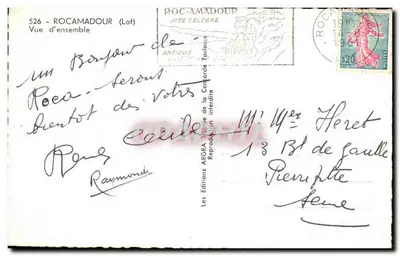 526 - ROCAMADOUR (Lot)
Vue d'ensemble
ROC-AMADOUR
SITE CELEBRE
ANTIQUE
ROCAMADOUR
0,20
un Bonjour de
Roca - serons
bientôt des vôtres
René Cécile
Raymonde
Les Editions ARGRA de la Concorde Toulouse
Reproduction interdite
Mr Mer Heret
13 Bl de Gaulle
Pierrefitte
Seine